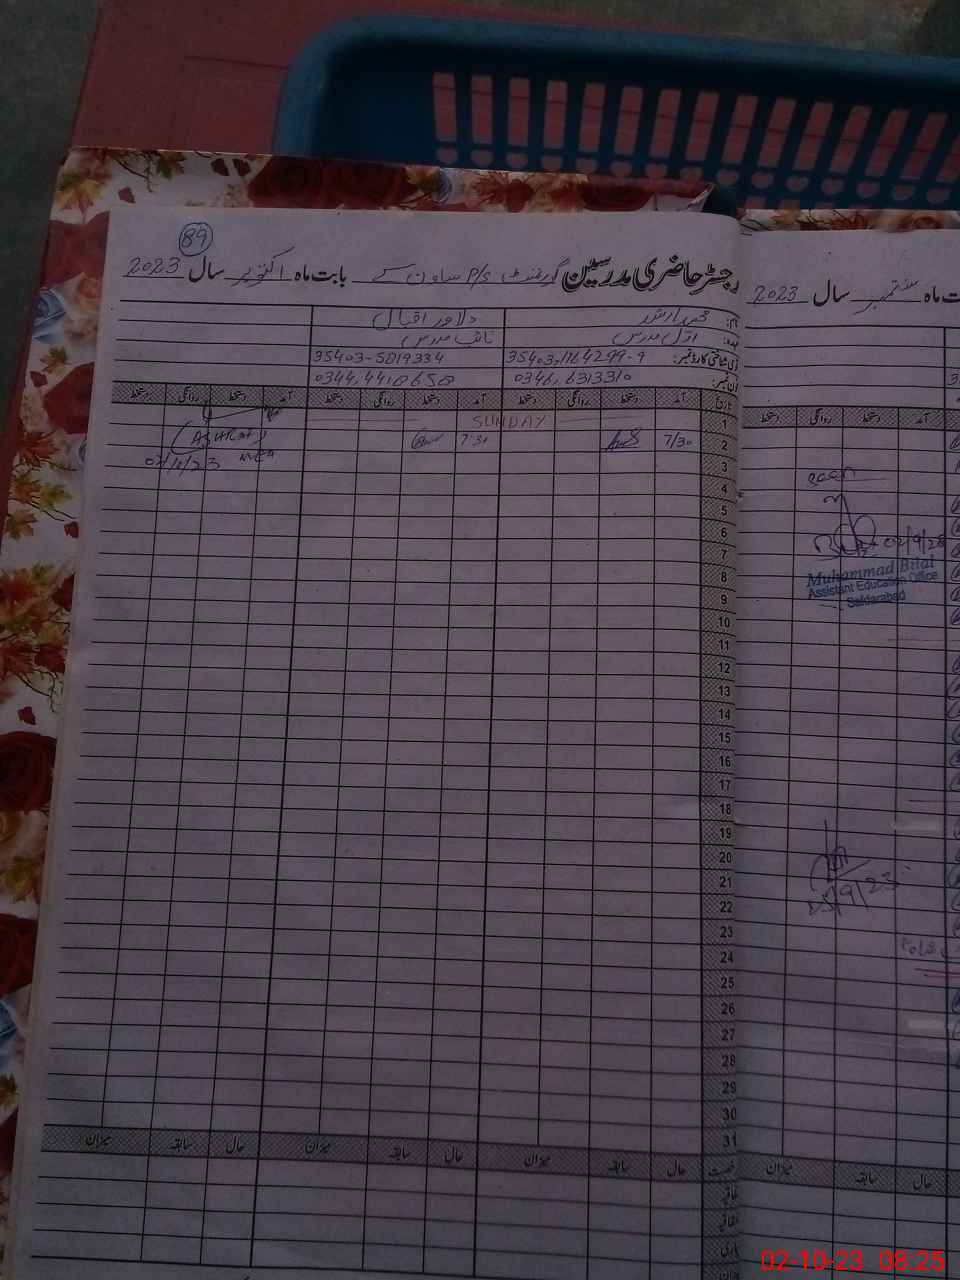 89
رجسٹر حاضری مدرسین گورنمنٹ P/S ساون کے بابت ماہ اکتوبر سال 2023
نام: محمد ارشد دلاور اقبال
عہدہ: اول مدرس نائب مدرس
35403-1764299-9 35403-5819334
0346,6313310
تاریخ آمد دستخط روانگی دستخط آمد دستخط روانگی دستخط آمد دستخط روانگی دستخط
1 SUNDAY
2 7/30 7:30
(ASHRAF)
MEA
02/10/23
3
4
5
6
7
8
9
10
11
12
13
14
15
16
17
18
19
20
21
22
23
24
25
26
27
28
29
30
31
رخصت حال سابقہ میزان حال سابقہ میزان حال سابقہ میزان
ماہ ستمبر سال 2023
آمد دستخط روانگی دستخط
seen
Muhammad Bilal
Assistant Education Office
Safdarabad
25/9/23
حال سابقہ میزان
02-10-23 08:25